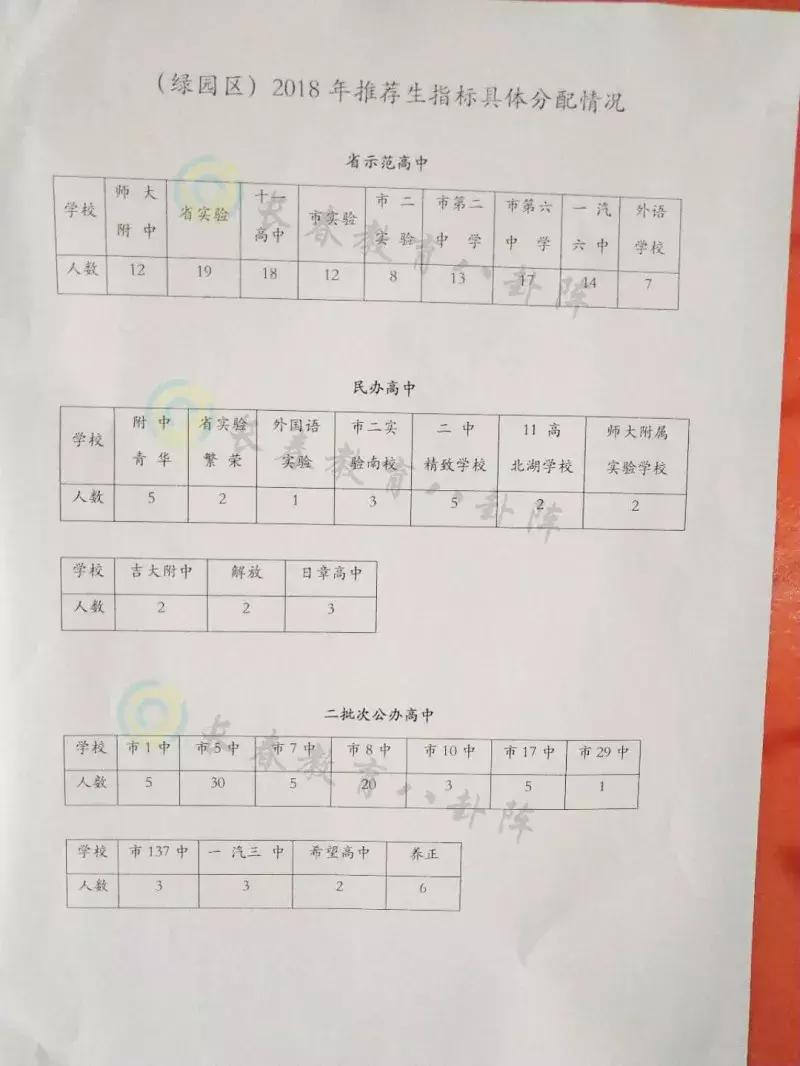 （绿园区）2018 年推荐生指标具体分配情况
省示范高中
学校 师大附中 省实验 十一高中 市实验 市二实验 市第二中学 市第六中学 一汽六中 外语学校
人数 12 19 18 12 8 13 17 14 7
民办高中
学校 附中青华 省实验繁荣 外国语实验 市二实验南校 二中精致学校 11高北湖学校 师大附属实验学校
人数 5 2 1 3 5 2 2
学校 吉大附中 解放 日章高中
人数 2 2 3
二批次公办高中
学校 市1中 市5中 市7中 市8中 市10中 市17中 市29中
人数 5 30 5 20 3 5 1
学校 市137中 一汽三中 希望高中 养正
人数 3 3 2 6
长春教育八卦阵
长春教育八卦阵
长春教育八卦阵